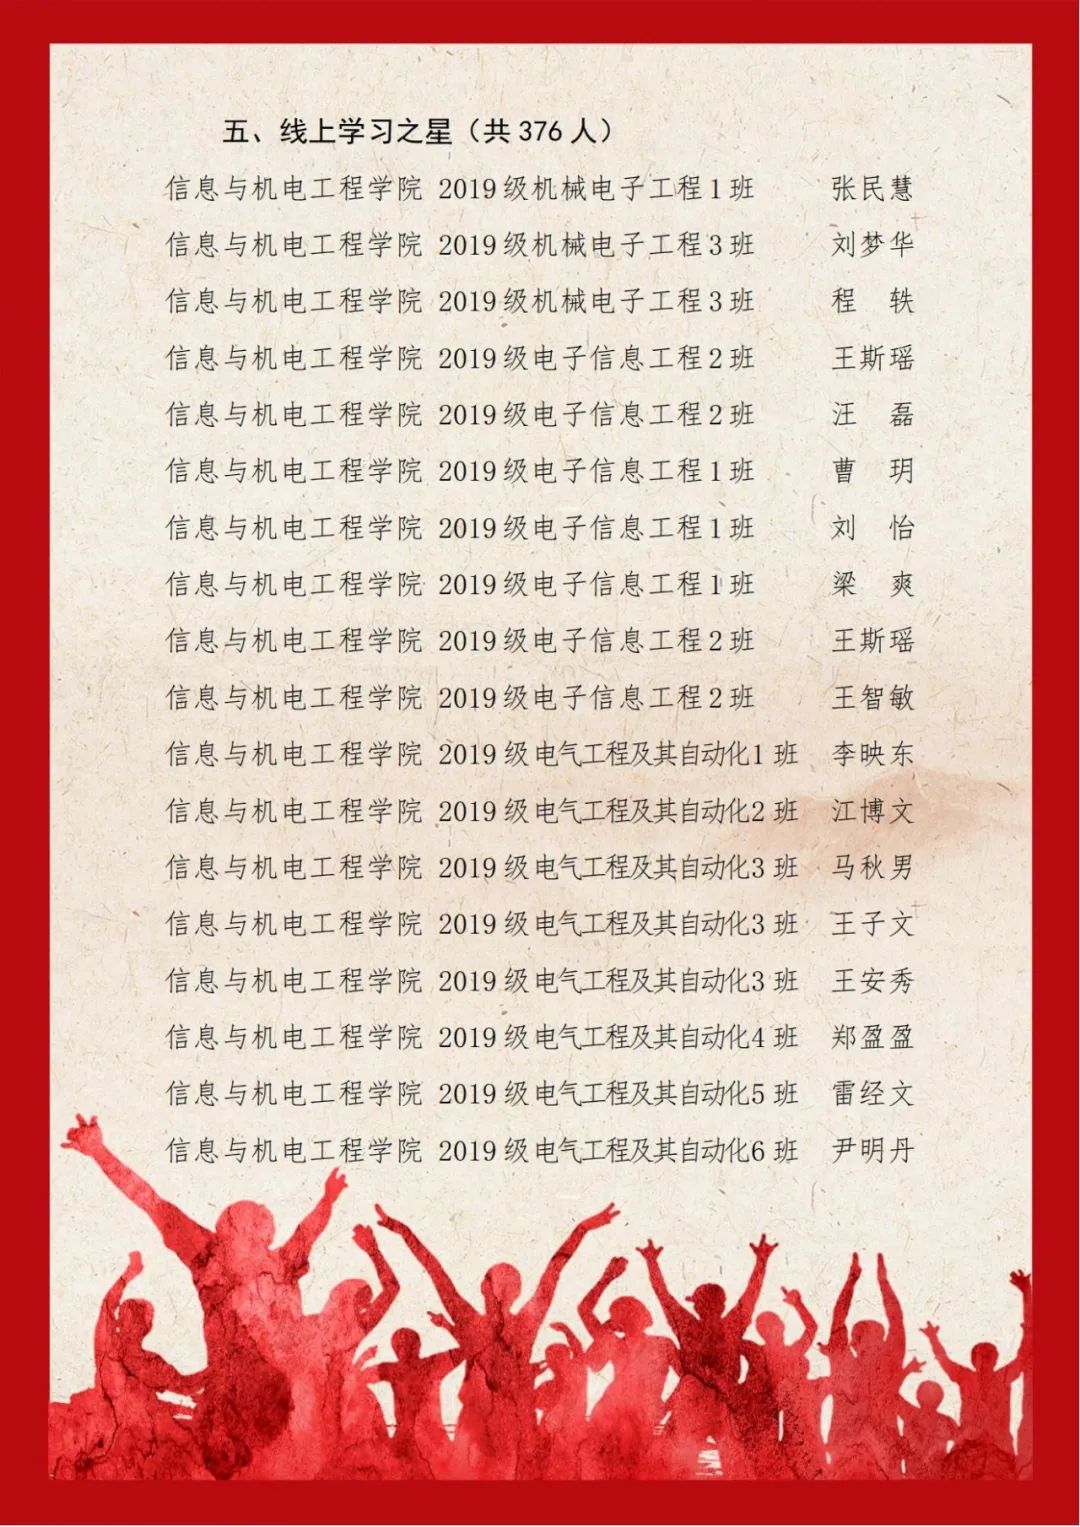 五、线上学习之星（共 376 人）
信息与机电工程学院 2019级机械电子工程1班 张民慧
信息与机电工程学院 2019级机械电子工程3班 刘梦华
信息与机电工程学院 2019级机械电子工程3班 程 轶
信息与机电工程学院 2019级电子信息工程2班 王斯瑶
信息与机电工程学院 2019级电子信息工程2班 汪 磊
信息与机电工程学院 2019级电子信息工程1班 曹 玥
信息与机电工程学院 2019级电子信息工程1班 刘 怡
信息与机电工程学院 2019级电子信息工程1班 梁 爽
信息与机电工程学院 2019级电子信息工程2班 王斯瑶
信息与机电工程学院 2019级电子信息工程2班 王智敏
信息与机电工程学院 2019级电气工程及其自动化1班 李映东
信息与机电工程学院 2019级电气工程及其自动化2班 江博文
信息与机电工程学院 2019级电气工程及其自动化3班 马秋男
信息与机电工程学院 2019级电气工程及其自动化3班 王子文
信息与机电工程学院 2019级电气工程及其自动化3班 王安秀
信息与机电工程学院 2019级电气工程及其自动化4班 郑盈盈
信息与机电工程学院 2019级电气工程及其自动化5班 雷经文
信息与机电工程学院 2019级电气工程及其自动化6班 尹明丹